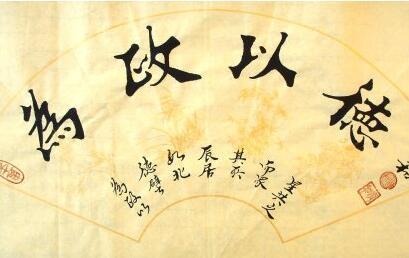 為政以德
為政以
德譬
如北
辰居
其所
而眾
星共之